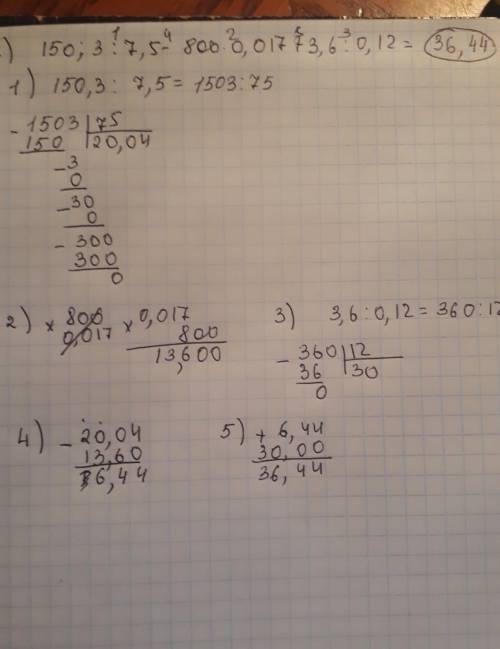 ) 150,3 : 7,5 - 800 · 0,017 + 3,6 : 0,12 = 36,44
1) 150,3 : 7,5 = 1503 : 75
- 1503 | 75
150 20,04
- 3
0
- 30
0
- 300
300
0
2) × 800 × 0,017
0,017 800
13,600
3) 3,6 : 0,12 = 360 : 12
- 360 | 12
36 30
0
4) - 20,04
13,60
6,44
5) + 6,44
30,00
36,44